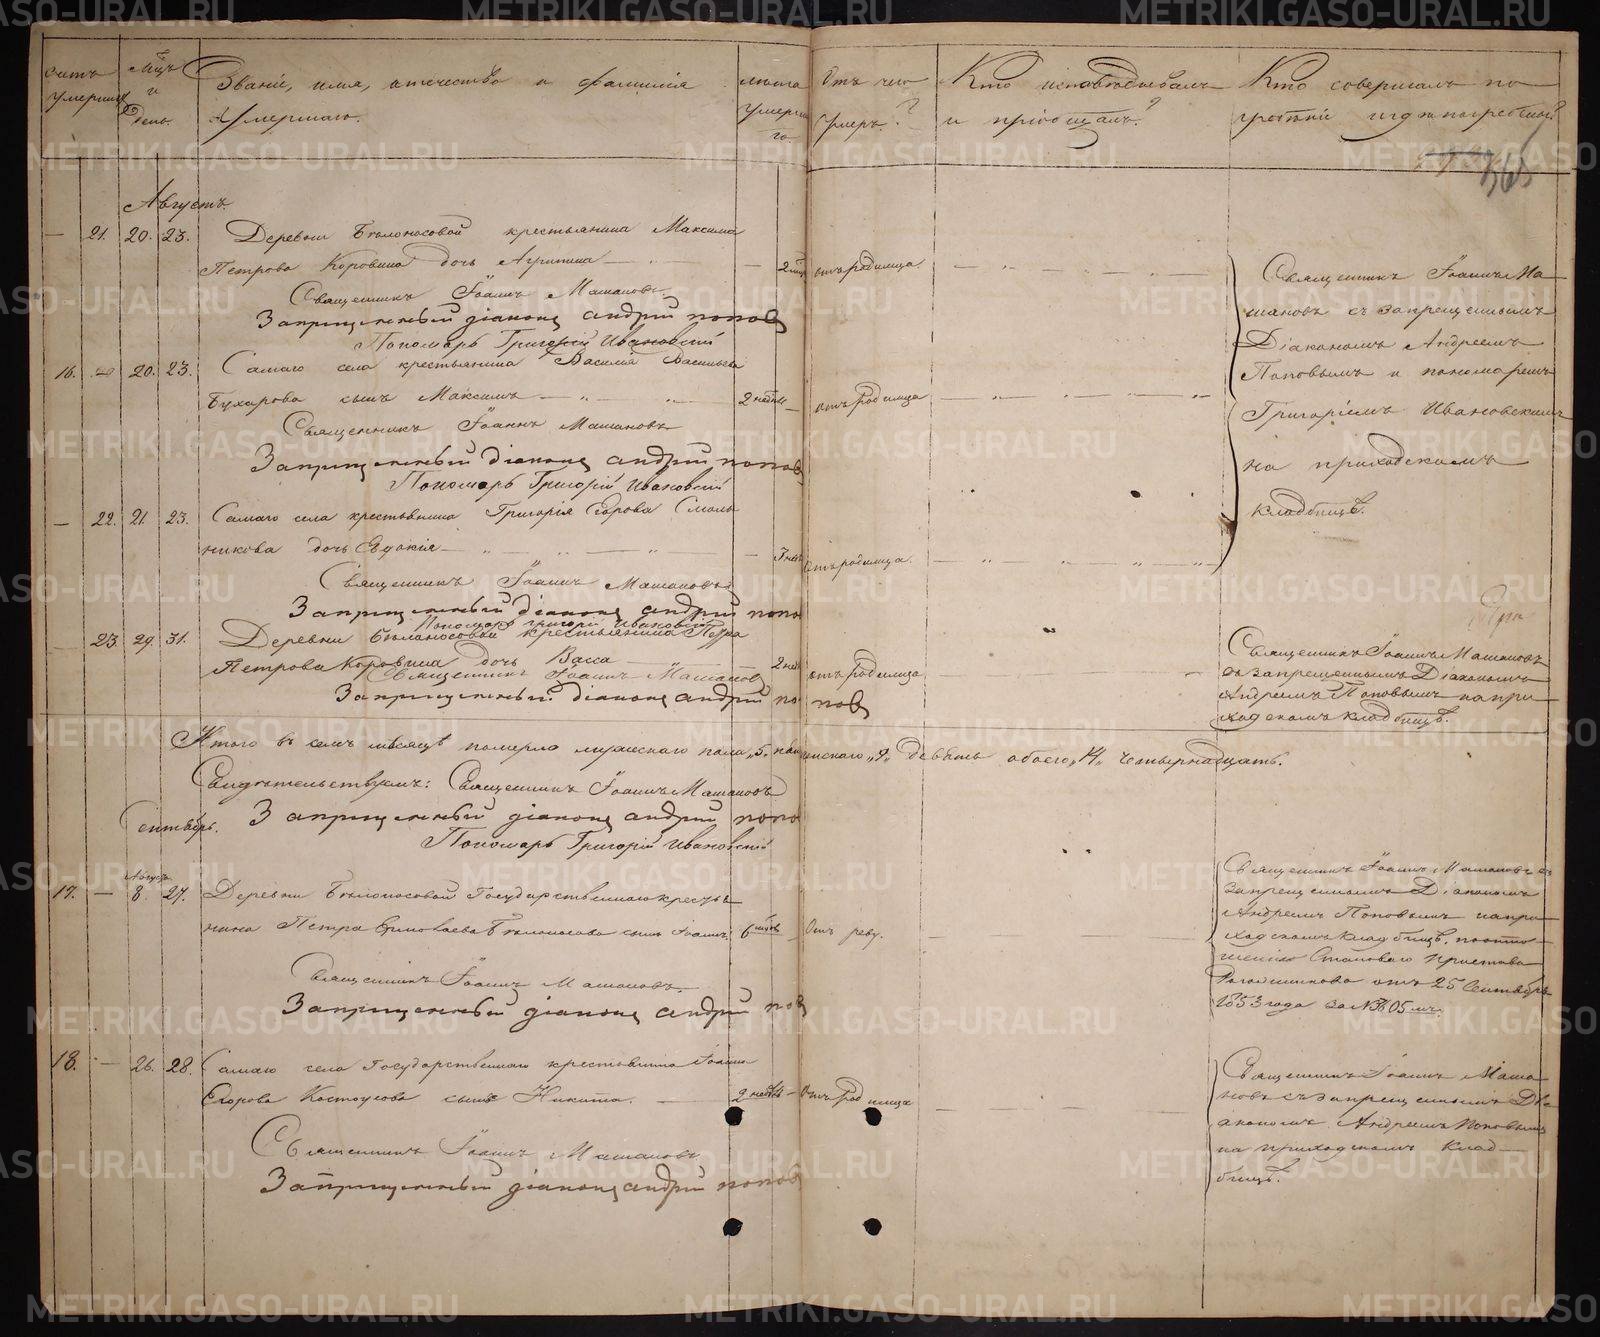 Счетъ умершихъ
Мѣсяцъ и день.
Званіе, имя, отчество и фамилія умершаго.
лѣта умершаго
Отъ чего умеръ?
Кто исповѣдывалъ и пріобщалъ?
Кто совершалъ погребеніе и гдѣ погребены?
Августъ.
— 21. 20. 23. Деревни Бѣлоносовой крестьянина Максима
Петрова Коровина дочь Агрипина — 2 отъ родимца.
Священникъ Іоаннъ Машановъ.
Запрещенный діаконъ андрей поповъ
Пономарь Григорій Ивановскій
Священникъ Іоаннъ Ма-
шановъ съ запрещеннымъ
Діакономъ Андреемъ
Поповымъ и пономаремъ
Григоріемъ Ивановскимъ
на приходскомъ
кладбищѣ.
16. — 20. 23. Самаго села крестьянина Василія Васильева
Бухарова сынъ Максимъ — 2 недѣль — отъ родимца
Священникъ Іоаннъ Машановъ
Запрещенный діаконъ андрей поповъ
Пономарь Григорій Ивановскій
— 22. 21. 23. Самаго села крестьянина Григорія Егорова Смоль-
никова дочь Евдокія — отъ родимца.
Священникъ Іоаннъ Машановъ
Запрещенный діаконъ андрей попо
Пономарь Григорій Ивановскій
23. 29. 31. Деревни Бѣлоносовой крестьянина Петра
Петрова Коровина дочь Васса — 2 нед отъ родимца
Священникъ Іоаннъ Машановъ
Запрещенный діаконъ андрей поповъ
Священникъ Іоаннъ Машановъ
съ запрещеннымъ Діакономъ
Андреемъ Поповымъ на при-
ходскомъ кладбищѣ.
Итого въ семъ мѣсяцѣ померло мужескаго пола „5„ женскаго „9„ девять обоего „14„ четырнадцать.
Свидѣтельствуемъ: Священникъ Іоаннъ Машановъ
Запрещенный діаконъ андрей попо
Пономарь Григорій Ивановскій
Сентябрь.
Августъ
17. — 8. 27. Деревни Бѣлоносовой Государственнаго крестья-
нина Петра Ермолаева Бѣлоносова сынъ Іоаннъ. 6 — Отъ реву.
Священникъ Іоаннъ Машановъ.
Запрещенный діаконъ андрей попов
Священникъ Іоаннъ Машановъ съ
запрещеннымъ Діакономъ
Андреемъ Поповымъ на при-
ходскомъ кладбищѣ, по отно-
шенію Становаго Пристава
отъ 25 Сентября
1853 года за №
18. — 26. 28. Самаго села Государственнаго крестьянина Іоанна
Егорова Костоусова сынъ Никита. — 2 недѣль — Отъ родимца
Священникъ Іоаннъ Машановъ.
Запрещенный діаконъ андрей поповъ
Священникъ Іоаннъ Маша-
новъ съ запрещеннымъ Ді-
акономъ Андреемъ Поповымъ
на приходскомъ клад-
бищѣ.
METRIKI.GASO-URAL.RU